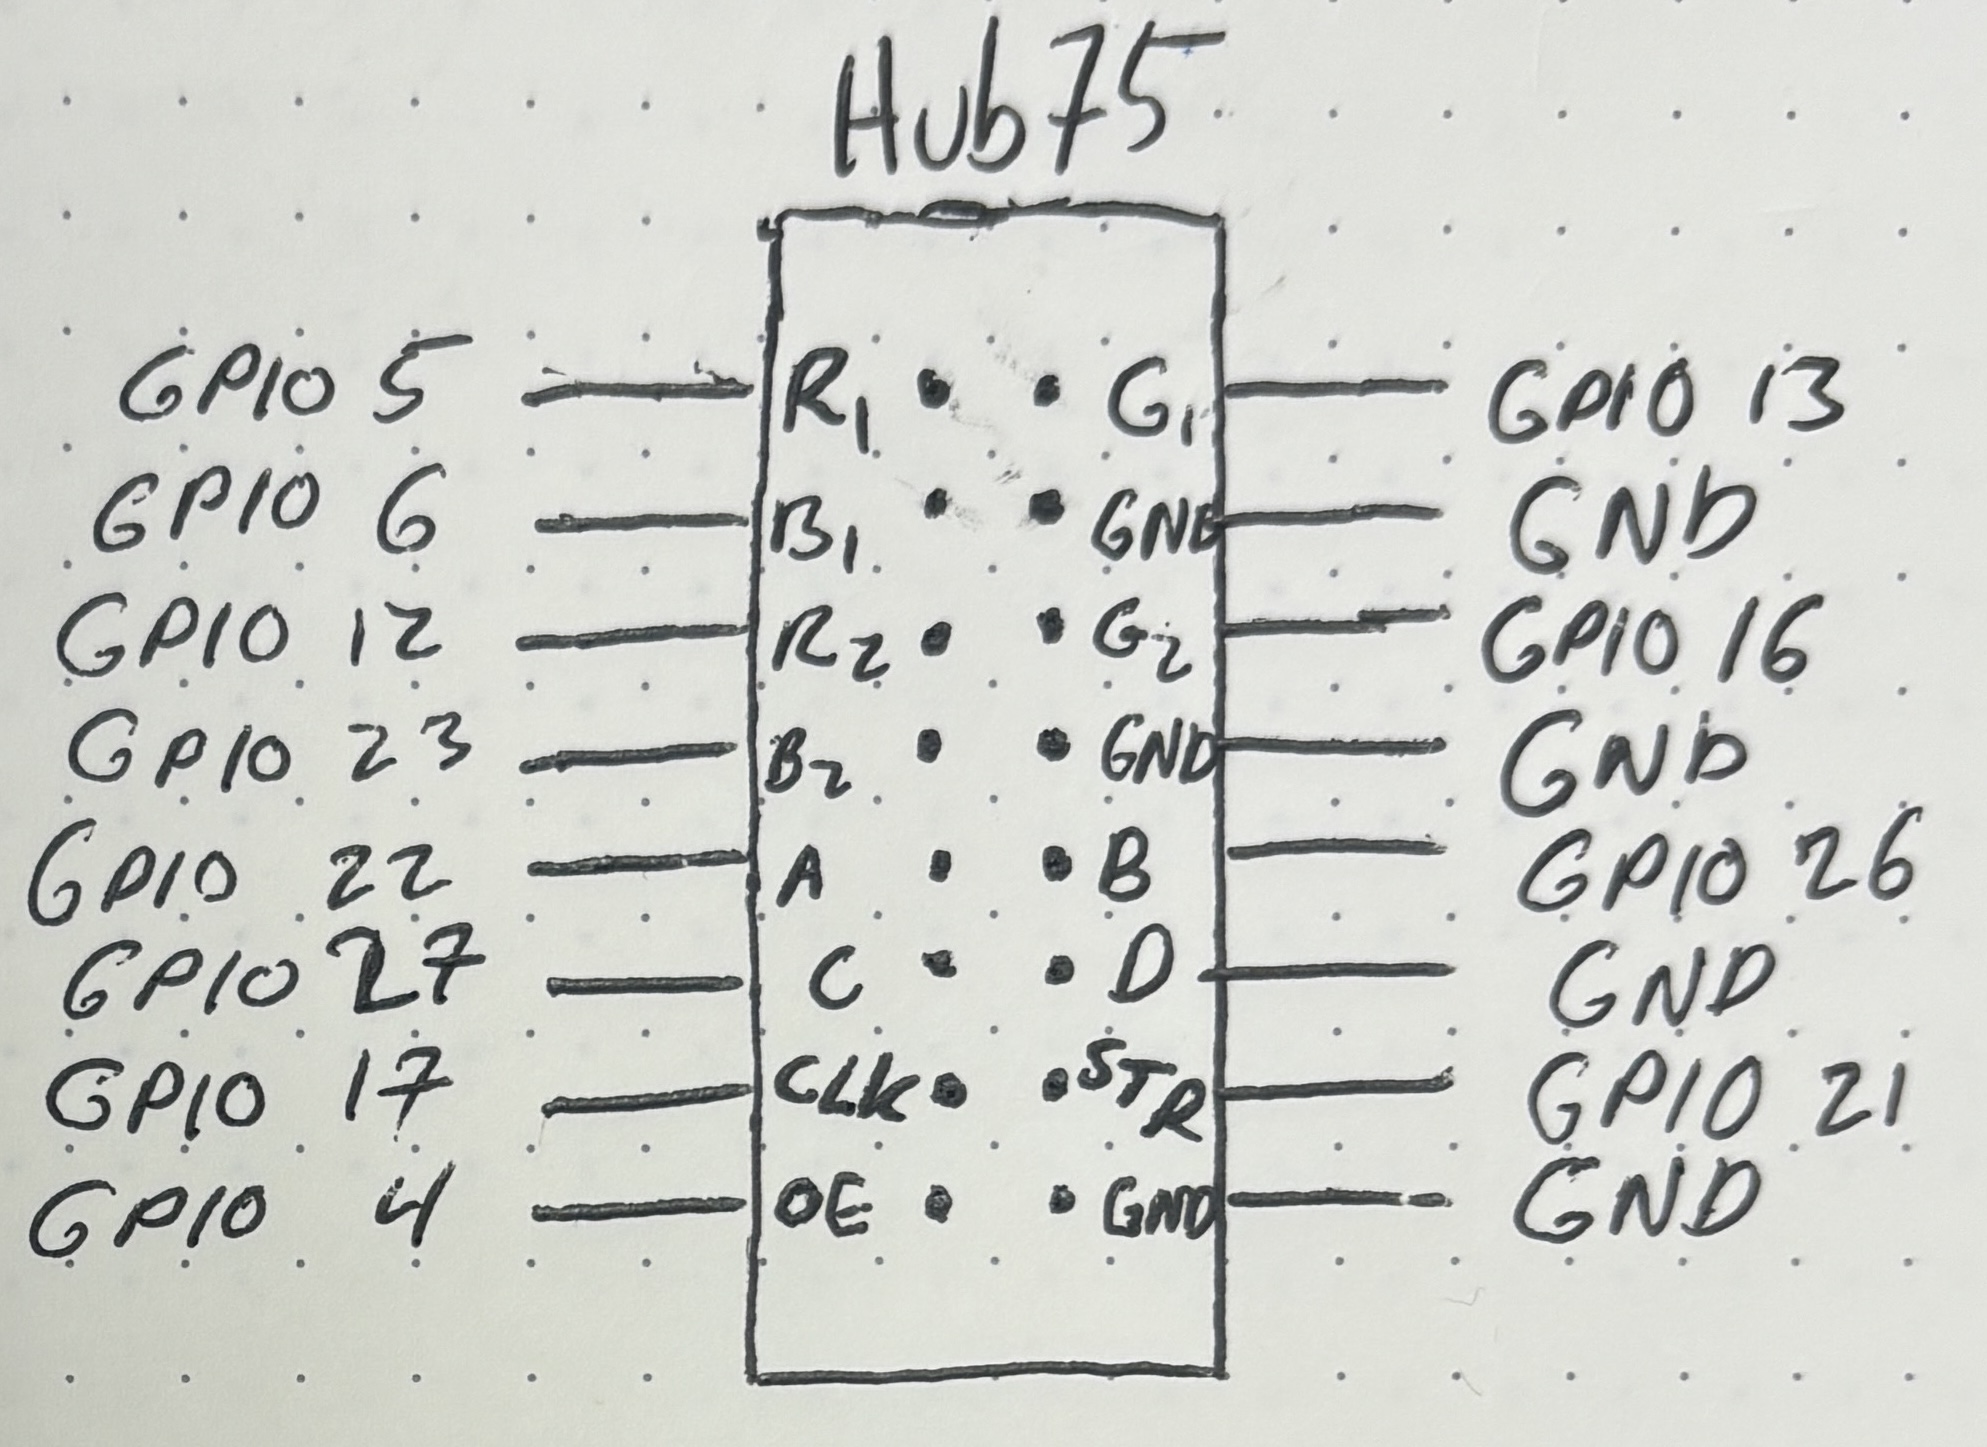 Hub75
GPIO 5 R1 G1 GPIO 13
GPIO 6 B1 GND GND
GPIO 12 R2 G2 GPIO 16
GPIO 23 B2 GND GND
GPIO 22 A B GPIO 26
GPIO 27 C D GND
GPIO 17 CLK STR GPIO 21
GPIO 4 OE GND GND